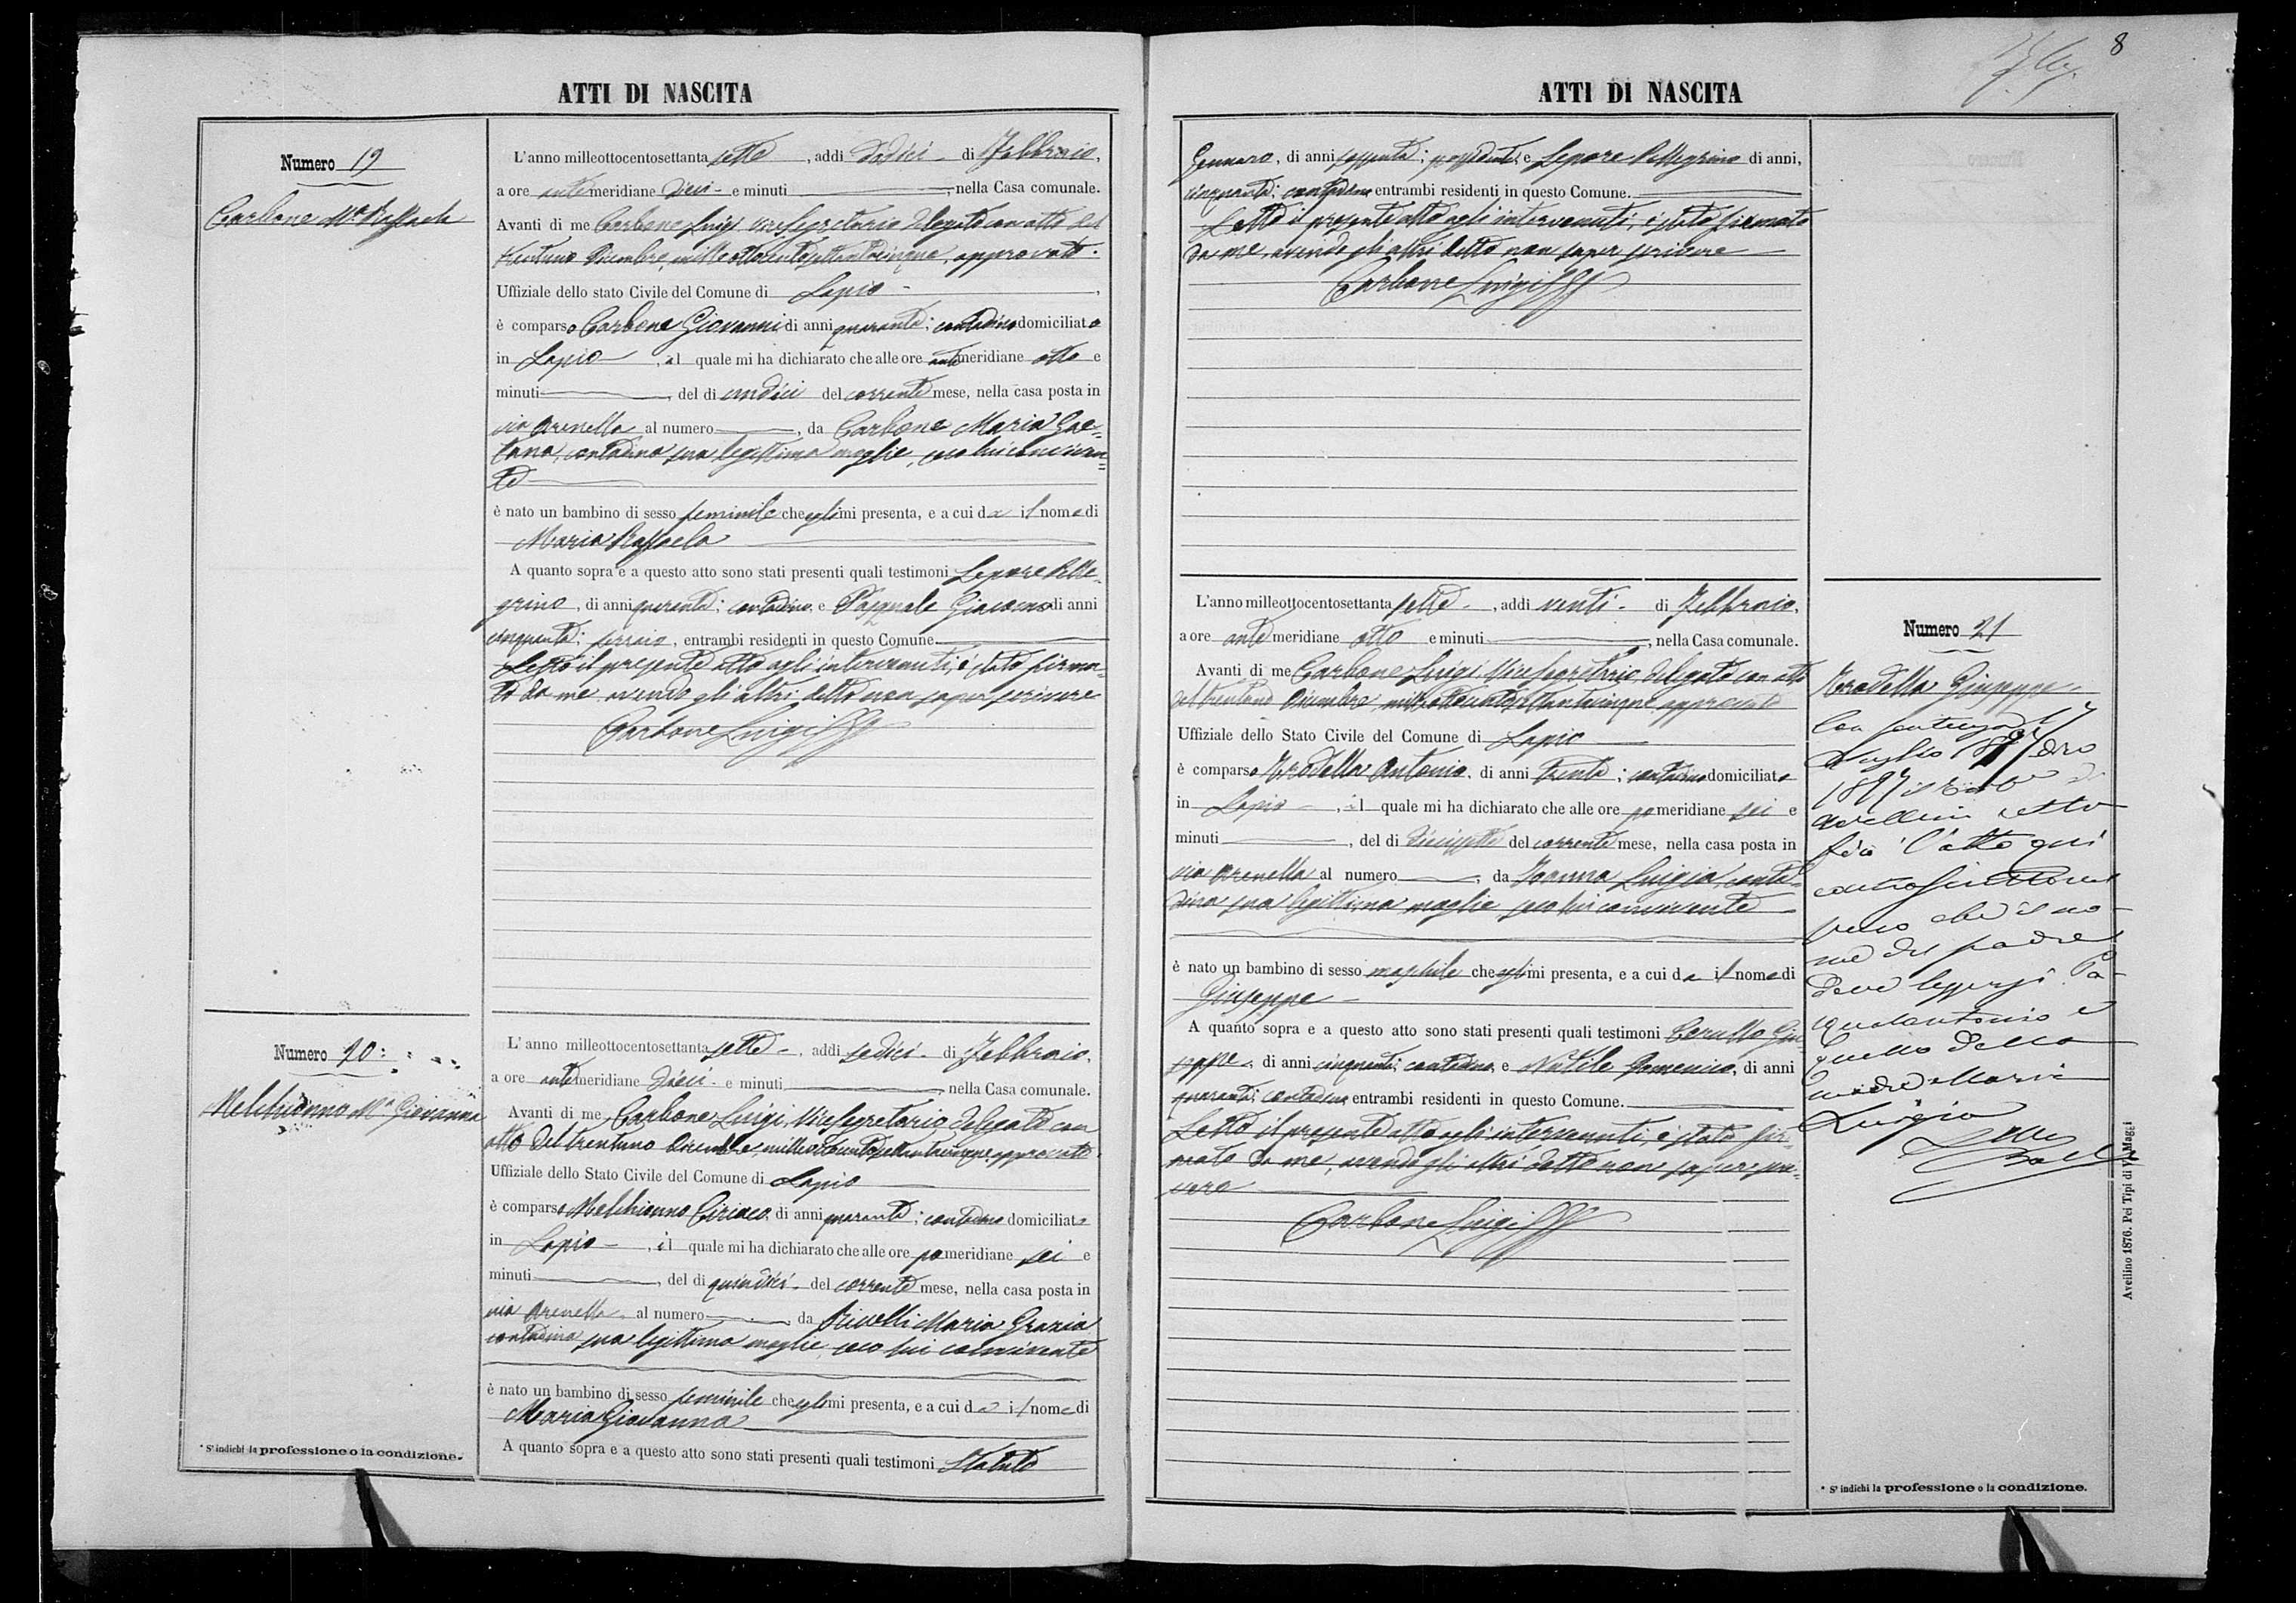 ATTI DI NASCITA
Numero 19
Carbone Mª Raffaela
L'anno milleottocentosettanta sette, addi dodici di Febbraio,
a ore antemeridiane dieci e minuti, nella Casa comunale.
Avanti di me Carbone Luigi Vicesegretario delegato con atto del
trentuno Dicembre milleottocentosettantacinque, approvato.
Uffiziale dello stato Civile del Comune di Lapio,
è comparso Carbone Giovanni di anni quaranta; contadino domiciliato
in Lapio, il quale mi ha dichiarato che alle ore antemeridiane otto e
minuti, del di undici del corrente mese, nella casa posta in
via Arenella al numero, da Carbone Maria Gae=
tana, contadina sua legittima moglie, seco lui conviven=
te
è nato un bambino di sesso feminile che egli mi presenta, e a cui da il nome di
Maria Raffaela
A quanto sopra e a questo atto sono stati presenti quali testimoni Lepore Pelle=
grino, di anni quaranta; contadino e Pasquale Giacomo di anni
cinquanta; ferraio, entrambi residenti in questo Comune.
Letto il presente atto agli intervenuti, è stato firma=
to da me avendo gli altri detto non saper scrivere
Carbone Luigi
Numero 20
Melchionno Mª Giovanna
L'anno milleottocentosettanta sette, addi sedici di Febbraio,
a ore antemeridiane dieci e minuti, nella Casa comunale.
Avanti di me Carbone Luigi, Vicesegretario delegato con
atto del trentuno Dicembre milleottocentosettantacinque approvato
Uffiziale dello Stato Civile del Comune di Lapio
è comparso Melchionno Ciriaco di anni quaranta; contadino domiciliato
in Lapio, il quale mi ha dichiarato che alle ore pomeridiane sei e
minuti, del di quindici del corrente mese, nella casa posta in
via Arenella al numero, da Rivelli Maria Grazia
contadina sua legittima moglie, seco lui convivente
è nato un bambino di sesso feminile che egli mi presenta, e a cui da il nome di
Maria Giovanna
A quanto sopra e a questo atto sono stati presenti quali testimoni Statuto
* Si indichi la professione o la condizione.
8
ATTI DI NASCITA
Gennaro, di anni sessanta; possidente, e Lepore Pellegrino di anni,
cinquanta; contadino entrambi residenti in questo Comune.
Letto il presente atto agli intervenuti, è stato firmato
da me, avendo gli altri detto non saper scrivere
Carbone Luigi
L'anno milleottocentosettanta sette, addi venti di Febbraio,
a ore antemeridiane otto e minuti, nella Casa comunale.
Avanti di me Carbone Luigi, Vicesegretario delegato con atto
del trentuno Dicembre milleottocentosettantacinque approvato
Uffiziale dello Stato Civile del Comune di Lapio
è comparso Trodella Antonio, di anni trenta; contadino domiciliato
in Lapio, il quale mi ha dichiarato che alle ore pomeridiane sei e
minuti, del di diecisette del corrente mese, nella casa posta in
via Arenella al numero, da Ioanna Luigia, conta=
dina sua legittima moglie seco lui convivente
è nato un bambino di sesso maschile che egli mi presenta, e a cui da il nome di
Giuseppe
A quanto sopra e a questo atto sono stati presenti quali testimoni Carullo Giu=
seppe, di anni cinquanta; contadino, e Nutile Domenico, di anni
quaranta; contadino entrambi residenti in questo Comune.
Letto il presente atto agli intervenuti, è stato fir=
mato da me, avendo gli altri detto non sapere scri=
vere
Carbone Luigi
Numero 21
Trodella Giuseppe
Con sentenza 17
Luglio
Avellino retti
ficò l'atto qui
controscritto nel
senso che il no-
me del padre
deve leggersi Pa-
squalantonio e
quello della
madre Maria
Luigia
* Si indichi la professione o la condizione.
Avellino 1876. Pei Tipi di V. Maggi